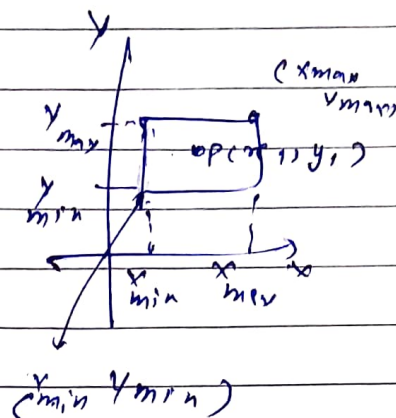 y
(xmax
ymax)
ymax
p(x1, y1)
ymin
xmin xmax x
(xmin ymin)